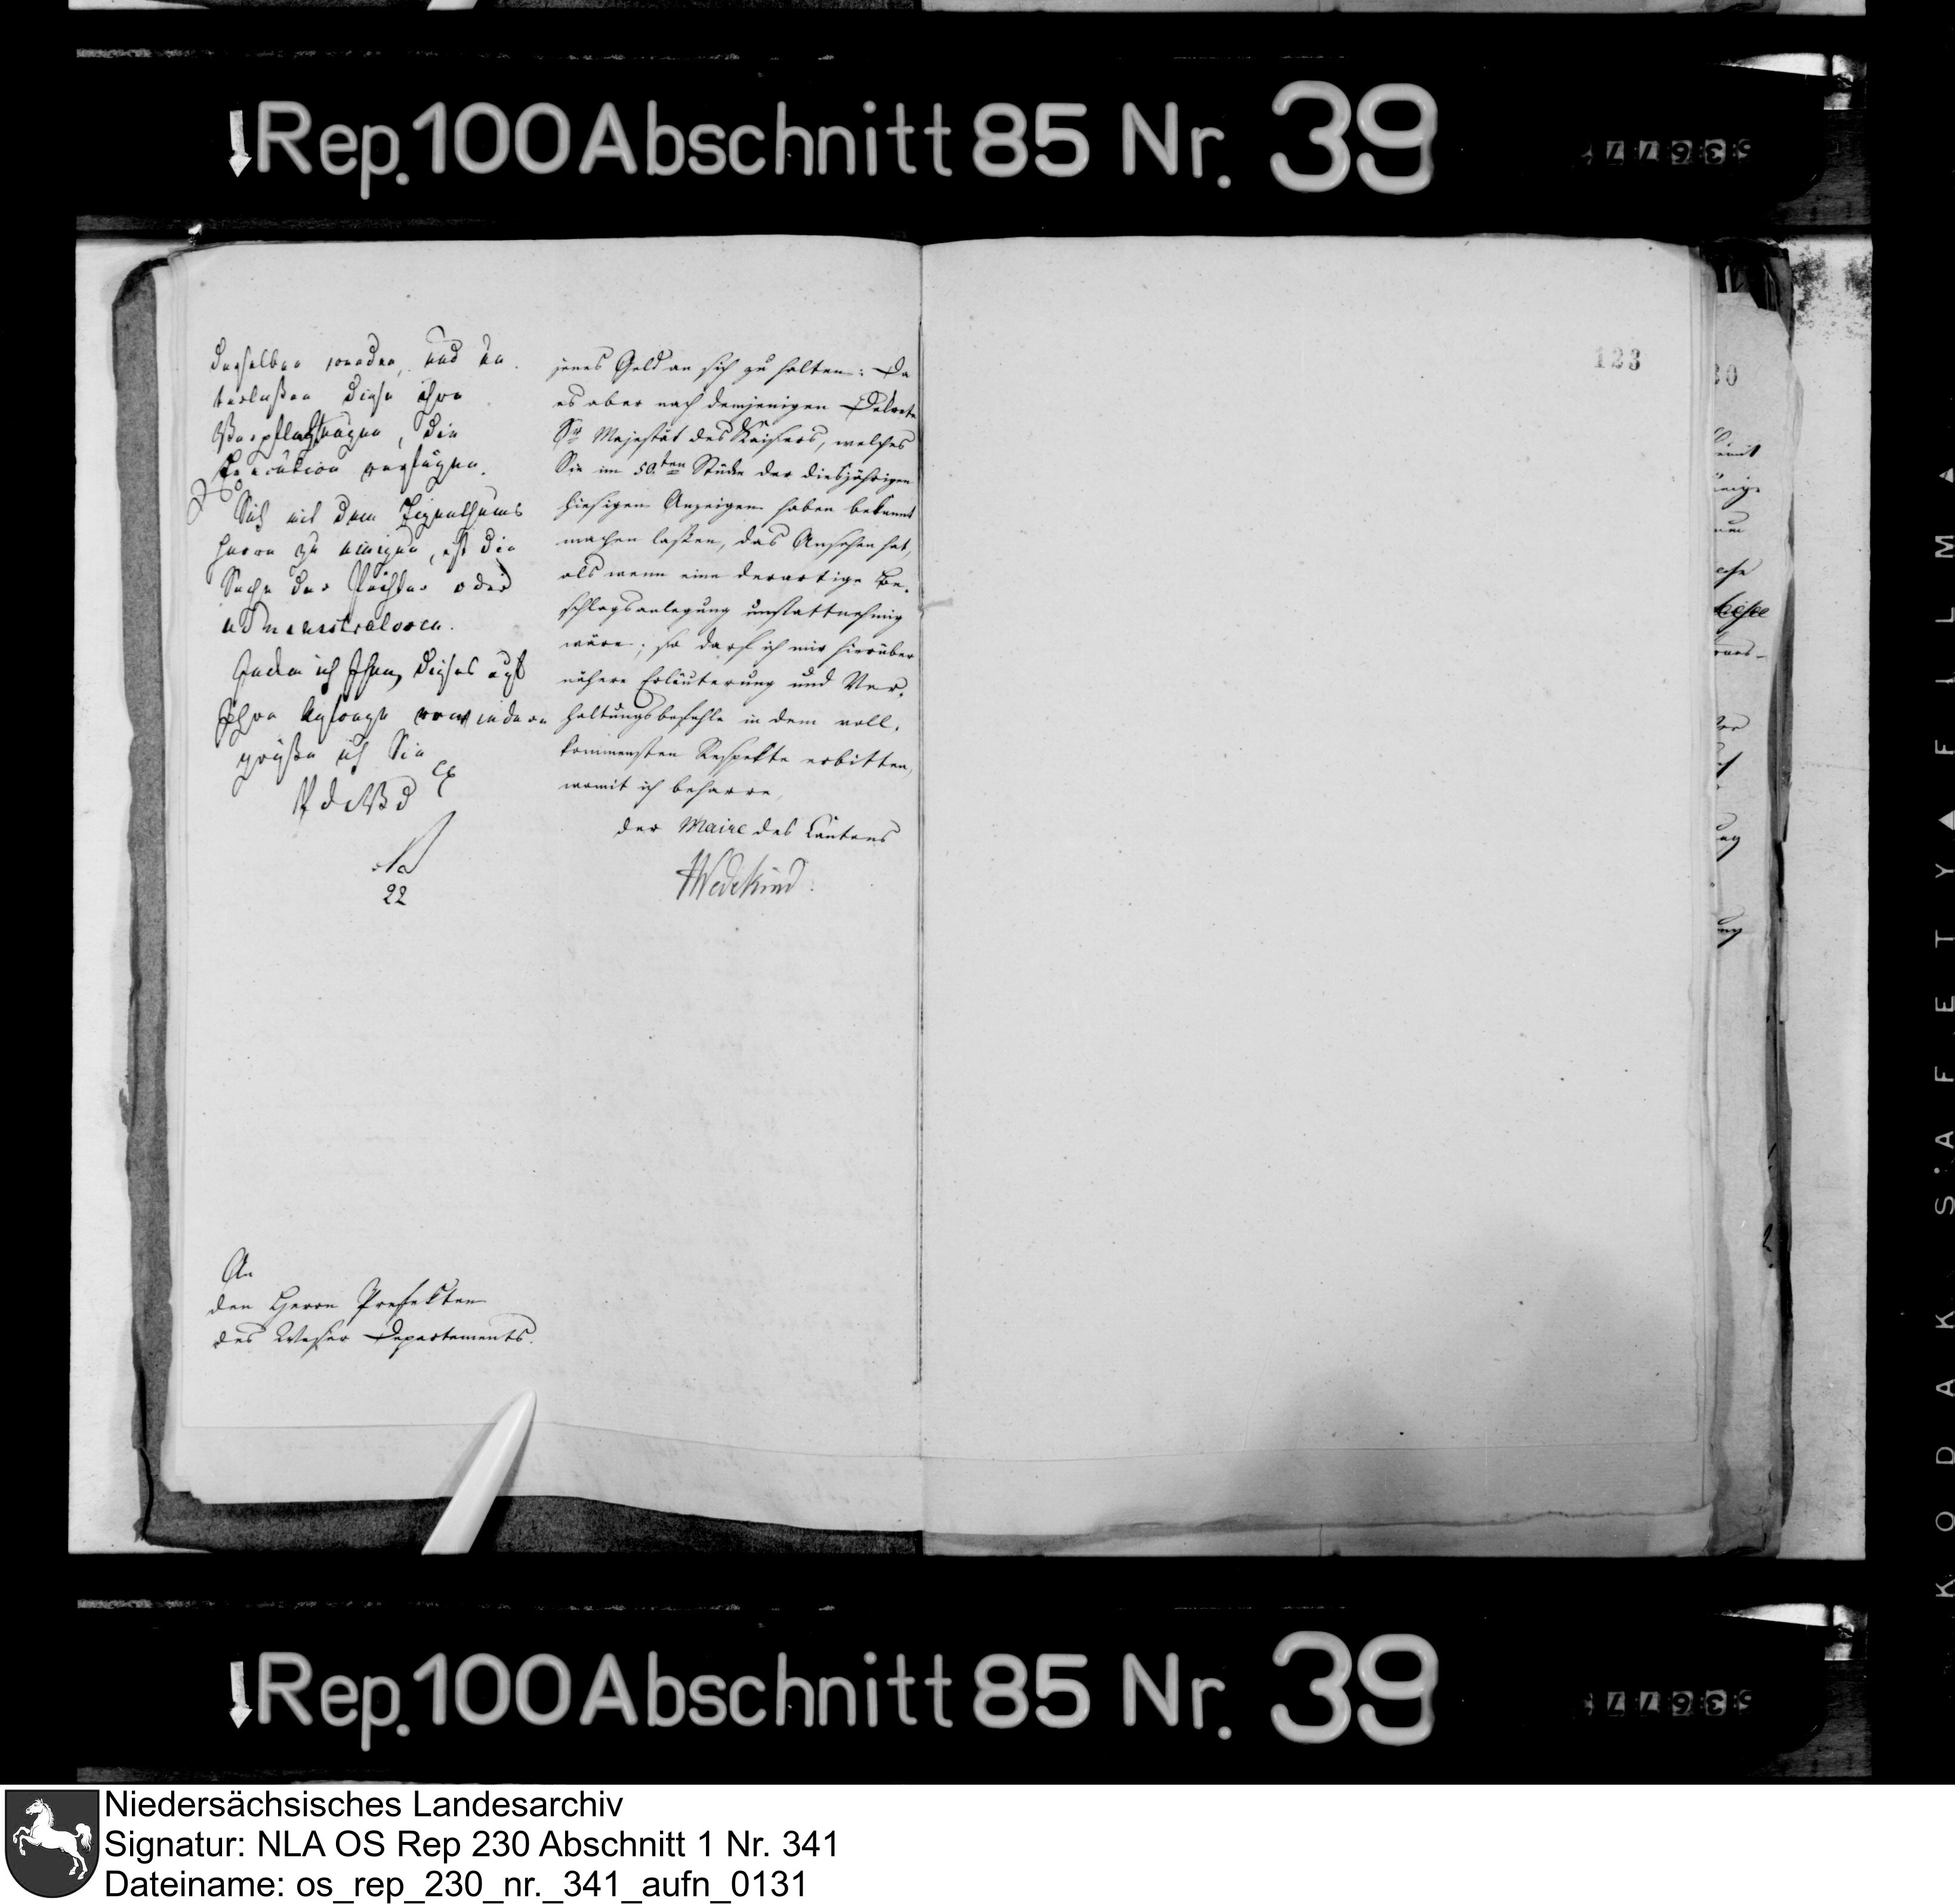 Rep. 100 Abschnitt 85 Nr. 39
123
30
derselben werden, und un
terlaßen diese ihre
Verpflichtungen, die
Execution verfügen.
Sich mit dem Eigenthums
herrn zu einigen, ist die
Sache der Pächter oder
administratoren.
Indem ich Ihnen dieses auf
Ihre Anfrage erwiedere
grüße ich Sie
P d W D
22
jenes Geld an sich zu halten: Da
es aber nach demjenigen Dekrete
Sr Majestät des Kaisers, welches
Sie im 50.ten Stücke der diesjährigen
hiesigen Anzeigen haben bekannt
machen laßen, das Ansehen hat,
als wenn eine derartige Be-
schlagsanlegung unstattnehmig
wäre; so darf ich mir hierüber
nähere Erläuterung und Ver-
haltungsbefehle in dem voll-
kommensten Respekte erbitten,
womit ich beharre,
der Maire des Cantons
Wedekind.
An
den Herrn Prefekten
des Weser Departements.
Rep. 100 Abschnitt 85 Nr. 39
KODAK SAFETY FILM
Niedersächsisches Landesarchiv
Signatur: NLA OS Rep 230 Abschnitt 1 Nr. 341
Dateiname: os_rep_230_nr._341_aufn_0131